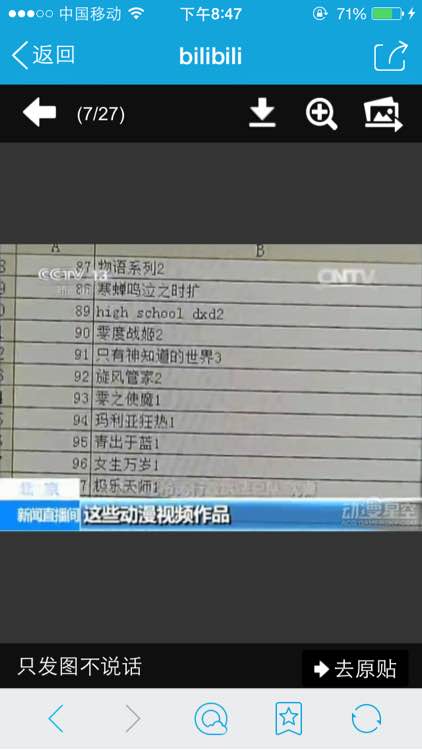 中国移动 下午8:47 71%
返回 bilibili
(7/27)
A B
CCTV 13 CNTV
87 物语系列2
88 寒蝉鸣泣之时扩
89 high school dxd2
90 零度战姬2
91 只有神知道的世界3
92 旋风管家2
93 零之使魔1
94 玛利亚狂热1
95 青出于蓝1
96 女生万岁1
7 极乐天师1
北京
新闻直播间 这些动漫视频作品
动漫星空
只发图不说话 去原贴